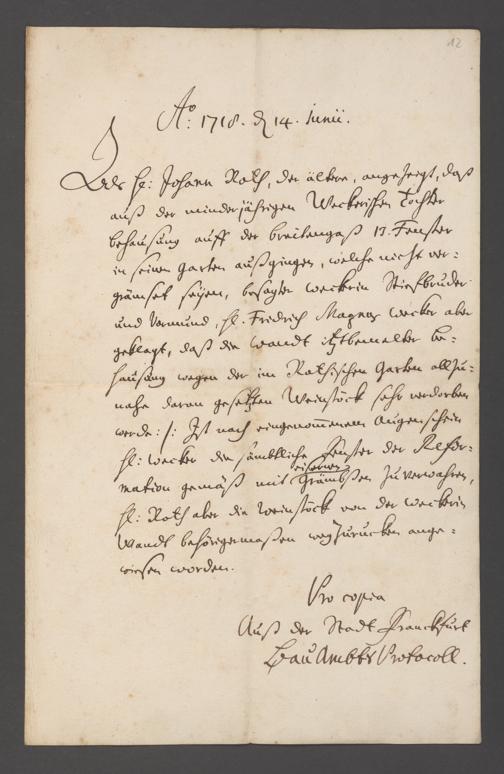 12
Aᵒ: 1718. d 14. Junii.
Als H: Johann Roth, der ältere, angezeigt, daß
auß der minderjährigen Weckerischen Tochter
behausung auff der breitengaß 13. Fenster
in seinen garten außgingen, welche nicht ver=
grämset seyen, besagter Weckerin Stiefbruder
und Vormund, H. Fridrich Magnus Wecker aber
geklagt, daß die Wandt itztbemelter be=
hausung wegen der im Rothischen Garten allzu=
nahe daran gesetzten Weinstöck sehr verdorben
werde: /: Ist nach eingenommenem Augenschein
H: Wecker die sämbtliche Fenster der Refor=
mation gemäß mit eisernen Grämbßen zu verwahren,
H: Roth aber die Weinstöck von der Weckerin
Wandt behörigermaßen wegzurucken ange=
wiesen worden.
Pro copia
Auß der Stadt Franckfurt
Bau Ambts Protocoll.